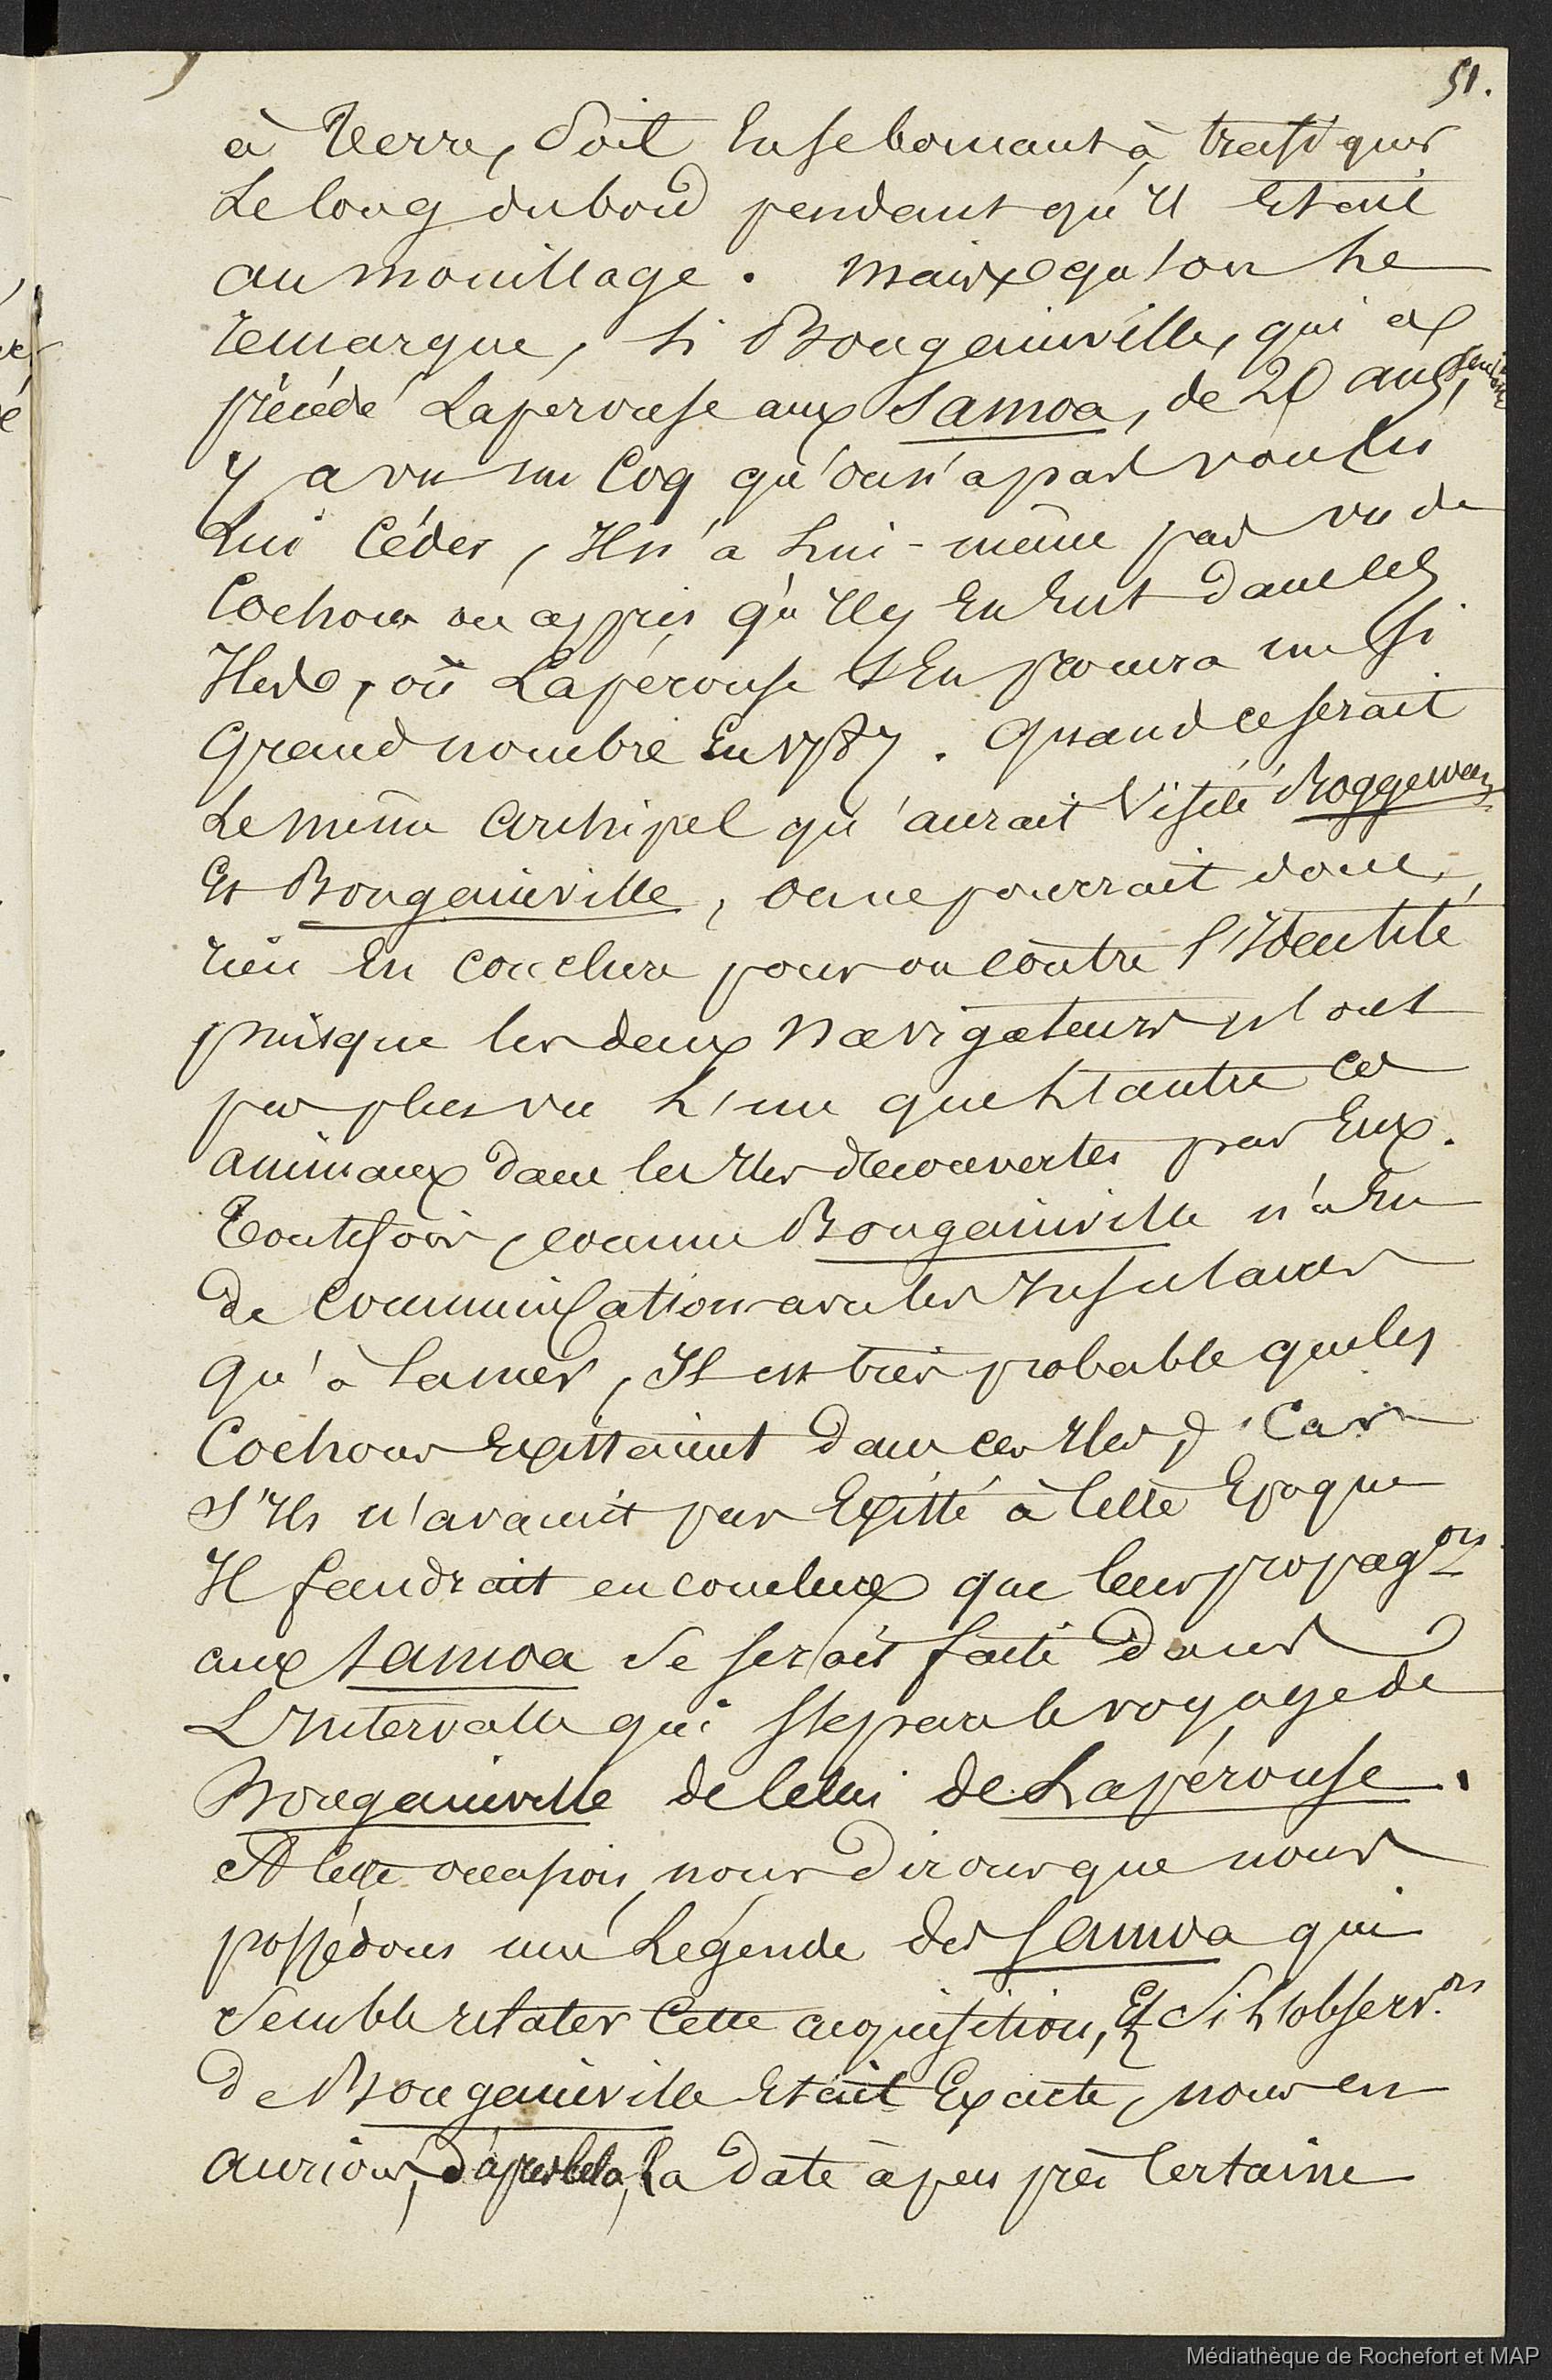 51.
à Terre, Soit En se bornant à trafiquer
Le long du bord pendant qu'Il Etait
au mouillage. Mais qu'on Le
remarque, Si Bougainville, qui a
précédé Laperouse aux Samoa, de 20 ans,
Y a vu un Coq qu'on n'a pas voulu
Lui Céder, Il n'a Lui-même pas vu de
Cochon ou appris qu'Il y En Eut dans les
Iles, où Lapérouse S'En procura un Si
Grand nombre En 1787. Quand ce serait
Le même Archipel qu'aurait Visité Roggeween
Et Bougainville, on ne pourrait donc
rien En conclure pour ou contre l'Identité
puisque les deux Navigateurs n'ont
pas plus vu L'un que L'autre ces
animaux dans les Iles découvertes par Eux.
Toutefois, comme Bougainville n'a Eu
de Communications avec les Insulaires
Qu'à la mer, Il est très probable que les
Cochons Existaient dans ces Iles, Car
S'Ils n'avaient pas Existé à Cette Epoque
Il faudrait en conclure que leur propag.on
aux Samoa Se serait faite dans
L'Intervalle qui Sépara le voyage de
Bougainville de Celui de Lapérouse.
A Cette occasion, nous dirons que nous
possédons une Légende des Samoa qui
Semble relater Cette acquisition, Et Si L'observ.on
de Bougainville Etait Exacte, nous en
aurions, d'après Cela, La date à peu près Certaine
Médiathèque de Rochefort et MAP